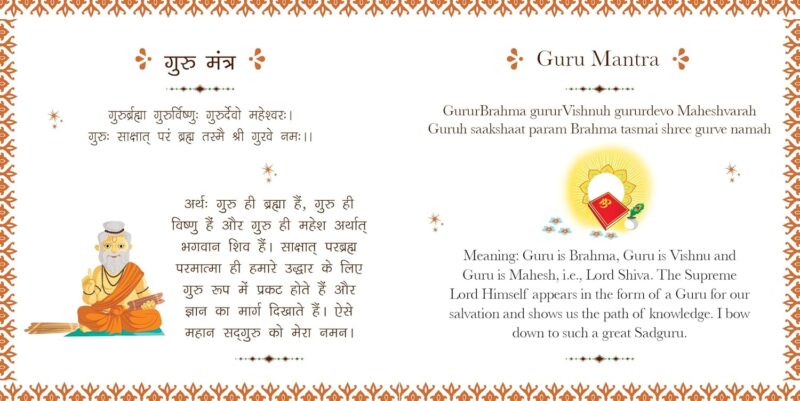 गुरु मंत्र
गुरुर्ब्रह्मा गुरुर्विष्णुः गुरुर्देवो महेश्वरः।
गुरुः साक्षात् परं ब्रह्म तस्मै श्री गुरवे नमः।।
अर्थः गुरु ही ब्रह्मा हैं, गुरु ही
विष्णु हैं और गुरु ही महेश अर्थात्
भगवान शिव हैं। साक्षात् परब्रह्म
परमात्मा ही हमारे उद्धार के लिए
गुरु रूप में प्रकट होते हैं और
ज्ञान का मार्ग दिखाते हैं। ऐसे
महान सद्गुरु को मेरा नमन।
Guru Mantra
GururBrahma gururVishnuh gururdevo Maheshvarah
Guruh saakshaat param Brahma tasmai shree gurve namah
ॐ
Meaning: Guru is Brahma, Guru is Vishnu and
Guru is Mahesh, i.e., Lord Shiva. The Supreme
Lord Himself appears in the form of a Guru for our
salvation and shows us the path of knowledge. I bow
down to such a great Sadguru.